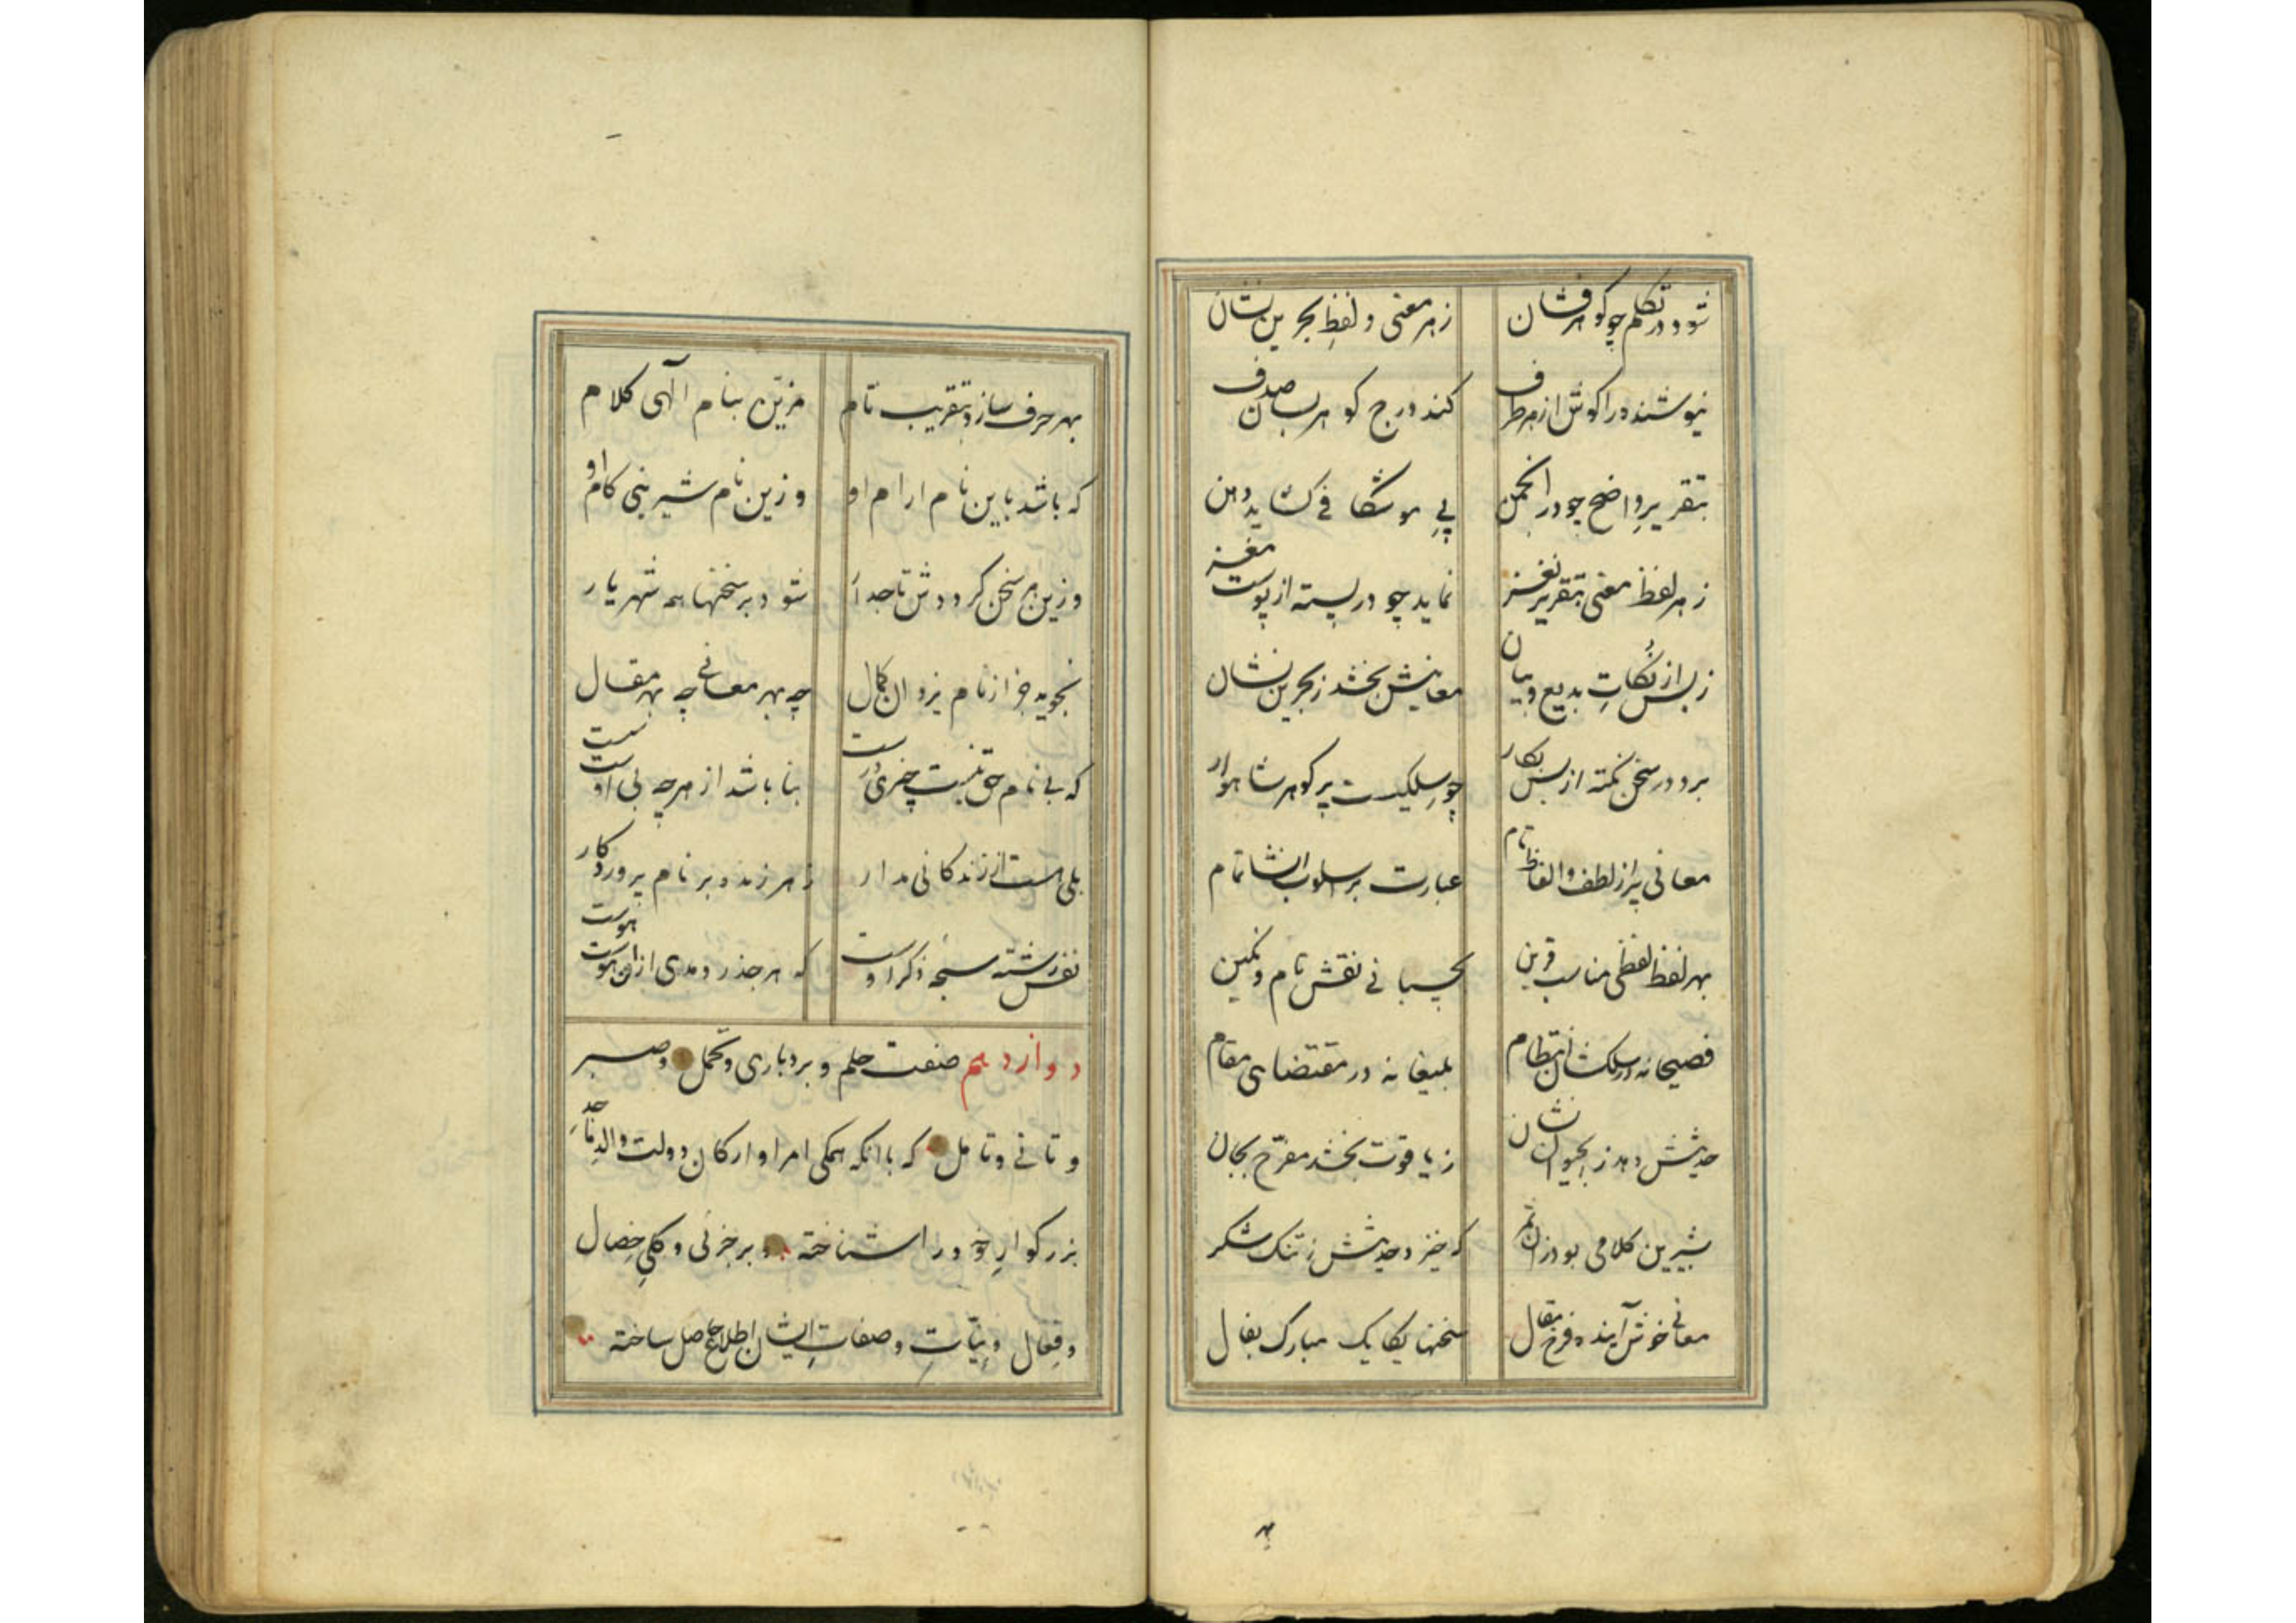 شود در تکلم چو گوهرفشان زهر معنی و لفظ بحرین نشان
نیوشنده را گوش از هر طرف کند درج گوهر بسان صدف
بتقریر واضح چو در انجمن پی موشکافی گشاید دهن
زهر لفظ معنی بتقریر نغز نماید چو در پسته از پوست مغز
زبس از نکات بدیع و بیان معانیش بخشد ز بحرین نشان
برد در سخن نکته از بس بکار چو سلکیست پر گوهر شاهوار
معانی پر از لطف و الفاظ تام عبارت بر اسلوب انشا تمام
بهر لفظ لفظی مناسب قرین بچسبانی نقش نام و نگین
فصیحانه در سلکشان انتظام بلیغانه در مقتضای مقام
حدیثش دهد ز آب حیوان نشان ز یاقوت بخشد مفرح بجان
بشیرین کلامی بود زان ثمر که خیزد حدیثش ز تنگ شکر
معانی خوش آینده فرخ مقال سخنها یکایک مبارک بفال
بهر
بهر حرف سازد بتقریب تام مزین بنام الهی کلام
که باشد باین نام ارام او وزین نام شیرینی کام او
وزین هر سخن گرددش تاجدار شود بر سخنها همه شهریار
نجوید جز از نام یزدان کمال چه بهر معانی چه بهر مقال
که بی نام حق نیست چیزی درست بنا باشد از هرچه بی اوست سست
بلی هست از زندگانی مدار زهر زنده بر نام پروردگار
نفس رشته سبحه ذکر اوست که هر جذر و مدی ازان های و هوست
دوازدهم صفت حلم و بردباری و تحمل و صبر
و تانی و تامل که باانکه همگی امرا و ارکان دولت والد ماجد
بزرگوار خود را شناخته و بر جزئی و کلی خصال
و فعال و نیات و صفات ایشان اطلاع حاصل ساخته